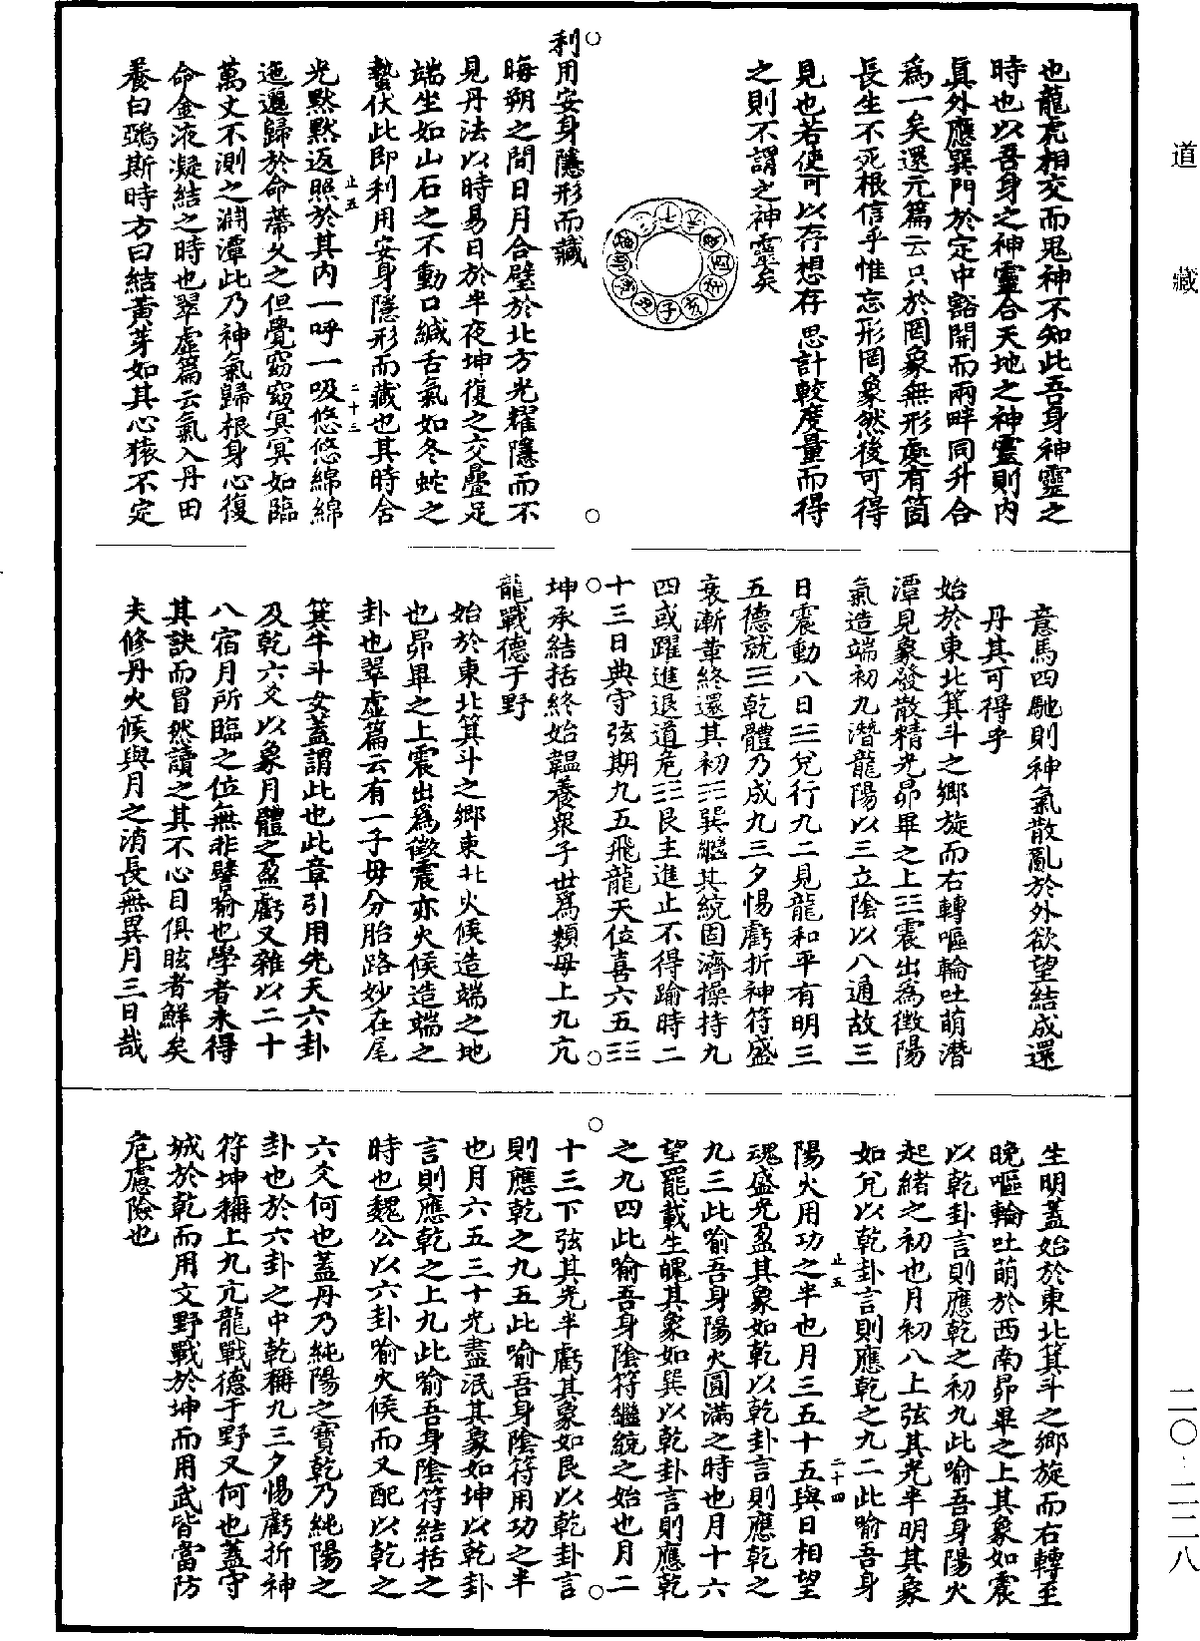 道藏
也龍虎相交而鬼神不知此吾身神靈之
時也以吾身之神靈合天地之神靈則內
眞外應巽門於定中豁開而兩畔同升合
爲一矣還元篇云只於罔象無形處有箇
長生不死根信乎惟忘形罔象然後可得
見也若使可以存想存思計較度量而得
之則不謂之神靈矣
利用安身隱形而藏
晦朔之間日月合璧於北方光耀隱而不
見丹法以時易日於半夜坤復之交疊足
端坐如山石之不動口緘舌氣如冬蛇之
蟄伏此即利用安身隱形而藏也其時含
光默默返照於其內一呼一吸悠悠綿綿
止五
二十三
迤邐歸於命蔕久之但覺窈窈冥冥如臨
萬丈不測之淵潭此乃神氣歸根身心復
命金液凝結之時也翠虛篇云氣入丹田
養白鵶斯時方曰結黃芽如其心猿不定
意馬四馳則神氣散亂於外欲望結成還
丹其可得乎
始於東北箕斗之鄉旋而右轉嘔輪吐萌潛
潭見象發散精光昴畢之上☳震出為徵陽
氣造端初九潛龍陽以三立陰以八通故三
日震動八日☱兌行九二見龍和平有明三
五德就☰乾體乃成九三夕惕虧折神符盛
衰漸革終還其初☴巽繼其統固濟操持九
四或躍進退道危☶艮主進止不得踰時二
十三日典守弦期九五飛龍天位喜六五☷
坤承結括終始韞養衆子世爲類母上九亢
龍戰德于野
始於東北箕斗之鄉東北火候造端之地
也昴畢之上震出爲徵震亦火候造端之
卦也翠虛篇云有一子母分胎路妙在尾
箕牛斗女蓋謂此也此章引用先天六卦
及乾六爻以象月體之盈虧又雜以二十
八宿月所臨之位無非譬喻也學者未得
其訣而冒然讀之其不心目俱眩者鮮矣
夫修丹火候與月之消長無異月三日哉
生明蓋始於東北箕斗之鄉旋而右轉至
晚嘔輪吐萌於西南昴畢之上其象如震
以乾卦言則應乾之初九此喻吾身陽火
起緒之初也月初八上弦其光半明其象
如兌以乾卦言則應乾之九二此喻吾身
止五
二十四
陽火用功之半也月三五十五與日相望
魂盛光盈其象如乾以乾卦言則應乾之
九三此喻吾身陽火圓滿之時也月十六
望罷載生魄其象如巽以乾卦言則應乾
之九四此喻吾身陰符繼統之始也月二
十三下弦其光半虧其象如艮以乾卦言
則應乾之九五此喻吾身陰符用功之半
也月六五三十光盡泯其象如坤以乾卦
言則應乾之上九此喻吾身陰符結括之
時也魏公以六卦喻火候而又配以乾之
六爻何也蓋丹乃純陽之寶乾乃純陽之
卦也於六卦之中乾稱九三夕惕虧折神
符坤稱上九亢龍戰德于野又何也蓋守
城於乾而用文野戰於坤而用武皆當防
危慮險也
二〇-二二八